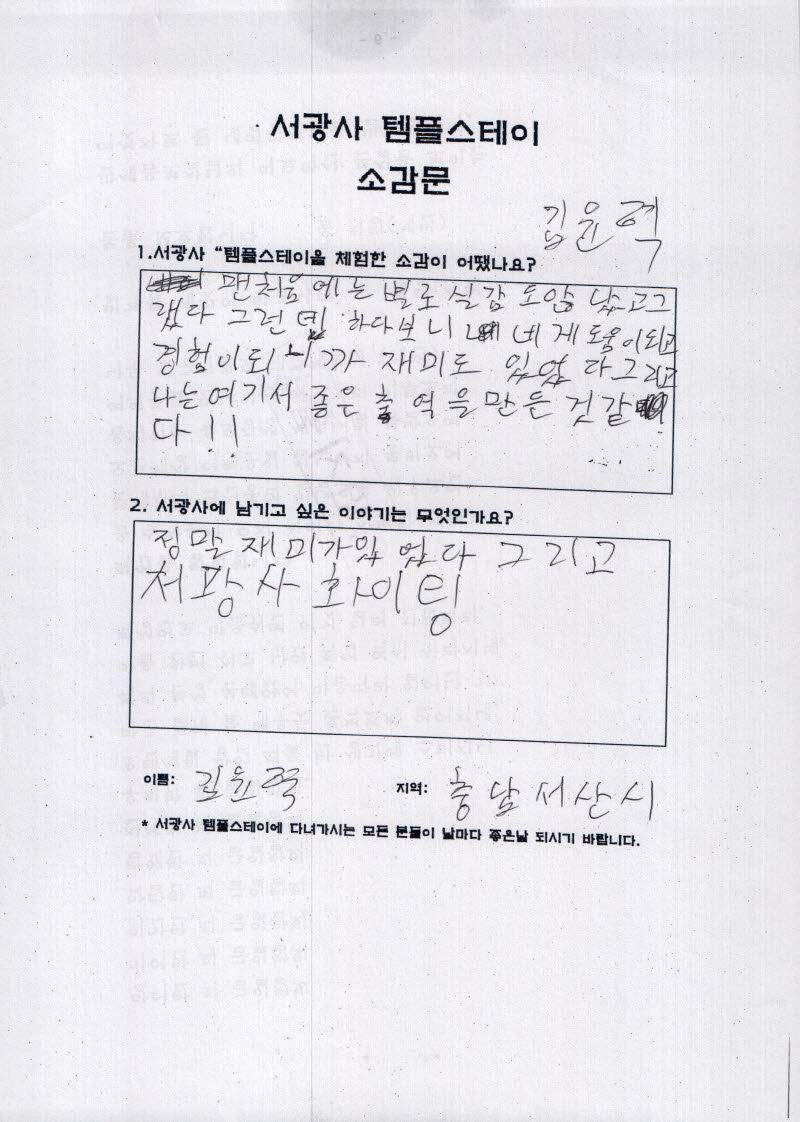 서광사 템플스테이
소감문
김윤혁
1.서광사 "템플스테이을 체험한 소감이 어땠나요?
맨처음에는 별로 실감 도않 났고그
랬다 그런데 하다보니 네게 도움이되고
경험이되니까 재미도 있었다그리고
나는여기서 좋은 추억을 만든 것 같
다!!
2. 서광사에 남기고 싶은 이야기는 무엇인가요?
정말 재미가있었다 그리고
서광사 화이팅
이름: 김윤혁 지역: 충남 서산시
* 서광사 템플스테이에 다녀가시는 모든 분들이 날마다 좋은날 되시기 바랍니다.